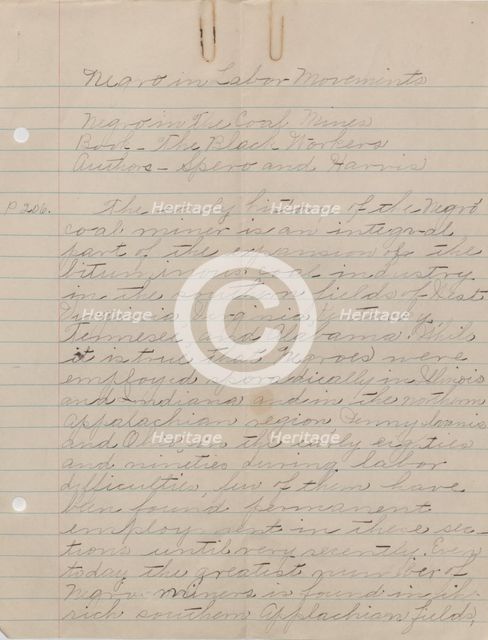 Negro in Labor Movements
Negro in The Coal Mines
Book - The Black Workers
Authors - Spero and Harris
P 206. The early history of the Negro
coal miner is an integral
part of the expansion of the
bituminous coal industry
in the southern fields of West
Virginia, Virginia, Kentucky
Tennessee and Alabama. While
it is true that Negroes were
employed sporadically in Illinois
and Indiana and in the northern
Appalachian region Pennsylvania
and Ohio in the early eighties
and nineties during labor
difficulties, few of them have
been found permanent
employment in these sec-
tions until very recently. Even
today the greatest number of
Negro miners is found in the
rich southern Applachian fields,
Heritage Heritage Heritage
Heritage Heritage
Heritage Heritage
Heritage Heritage
Heritage Heritage Heritage
©